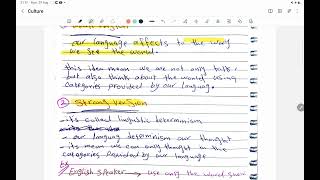 Culture
our language affects to the way
we see the world.
this idea mean we are not only talk,
but also think about the world using
categories provided by our language.
② Strong version
its called linguistic determinism
our languag determinism our thought
its mean we can only thought in the
categories provided by our language
English speaker → use only the word snow